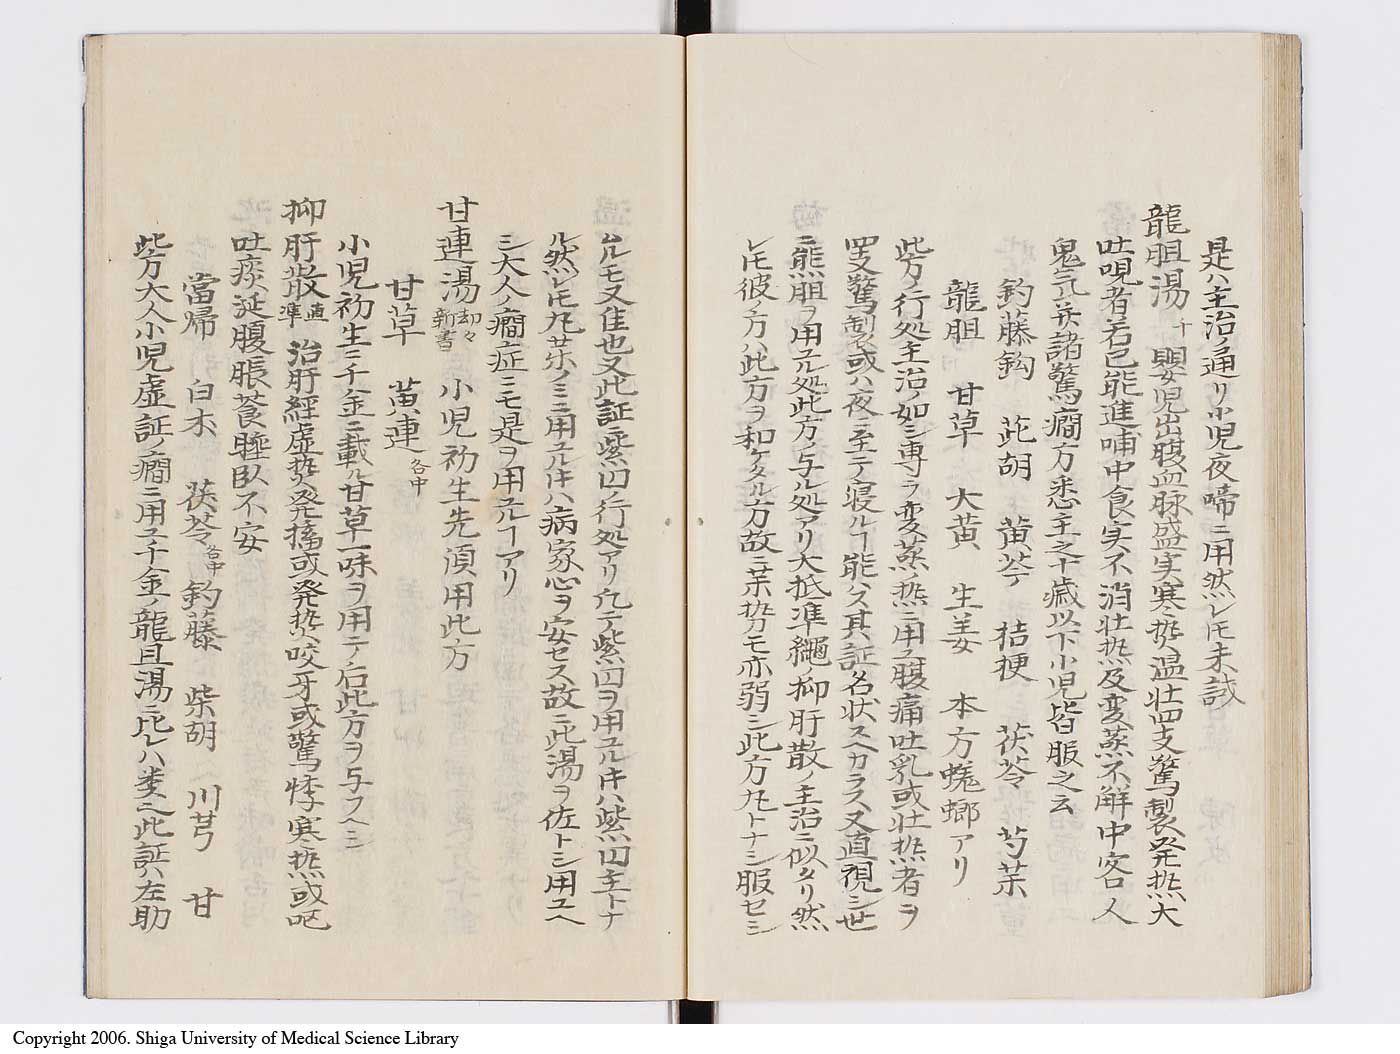 是ハ主治ノ通リ小児夜啼ニ用然レモ未試
龍胆湯 千 嬰児出腹血脉盛実寒熱温壮四支驚掣発熱大
吐哯者若已能進哺中食実不消壮熱及変蒸不解中客人
鬼気并諸驚癇方悉主之十歳以下小児皆服之云
釣藤鈎 茈胡 黄芩 桔梗 茯苓 芍薬
龍胆 甘草 大黄 生姜 本方蜣螂アリ
此方ノ行処主治ノ如シ専ラ変蒸ノ熱ニ用ユ腹痛吐乳或壮熱者ヲ
驚掣或ハ夜ニ至テ寝ルヿ能ハス其証名状スヘカラス又直視シ世
ニ熊胆ヲ用ユル処此方ノ与ル処アリ大抵準繩ノ抑肝散ノ主治ニ似タリ然
レモ彼ノ方ハ此方ヲ和ケタル方故ニ薬勢モ亦弱シ此方丸トナシ服セシ
ムルモ又佳也又此証ニ紫円ノ行処アリ凢テ紫円ヲ用ユル時ハ紫円主トナ
ル然レモ丸薬ノミニ用ユル時ハ病家心ヲ安セス故ニ此湯ヲ佐トシ用ユヘ
シ大人ノ癇症ニモ是ヲ用ユルヿアリ
甘連湯 新書 小児初生先須用此方
甘草 黄連 各中
小児初生ニ千金ニ載ル甘草一味ヲ用テノ后此方ヲ与スヘシ
抑肝散 直準 治肝経虚熱発搐或発熱咬牙或驚悸寒熱或呕
吐痰涎腹脹養睡臥不安
當帰 白朮 茯苓 各中 釣藤 柴胡 川芎 甘
此方大人小児虚証ノ癇ニ用ユ千金ノ龍且湯ニ比レハ此証ハ左助